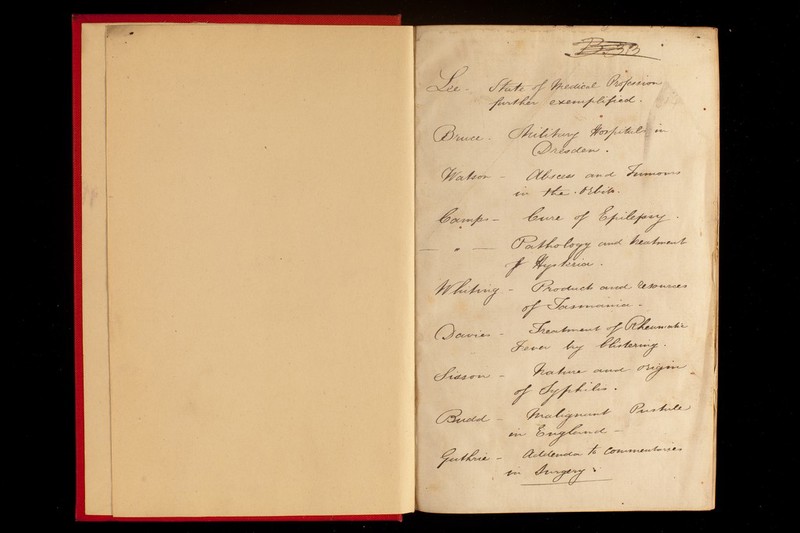 Lee - State of Medical Profession
further exemplified.
Bruce - Military Hospitals in
Dresden.
Watson - Abscess and Tumours
in the Orbit.
Camps - Cure of Epilepsy.
— " — Pathology and treatment
of Hysteria.
Whiting - Products and resources
of Tasmania -
Davies - Treatment of Rheumatic
Fever by blistering.
Sisson - Nature and origin
of Syphilis.
Budd - Malignant Pustule
in England -
Guthrie - Addenda to Commentaries
in Surgery.